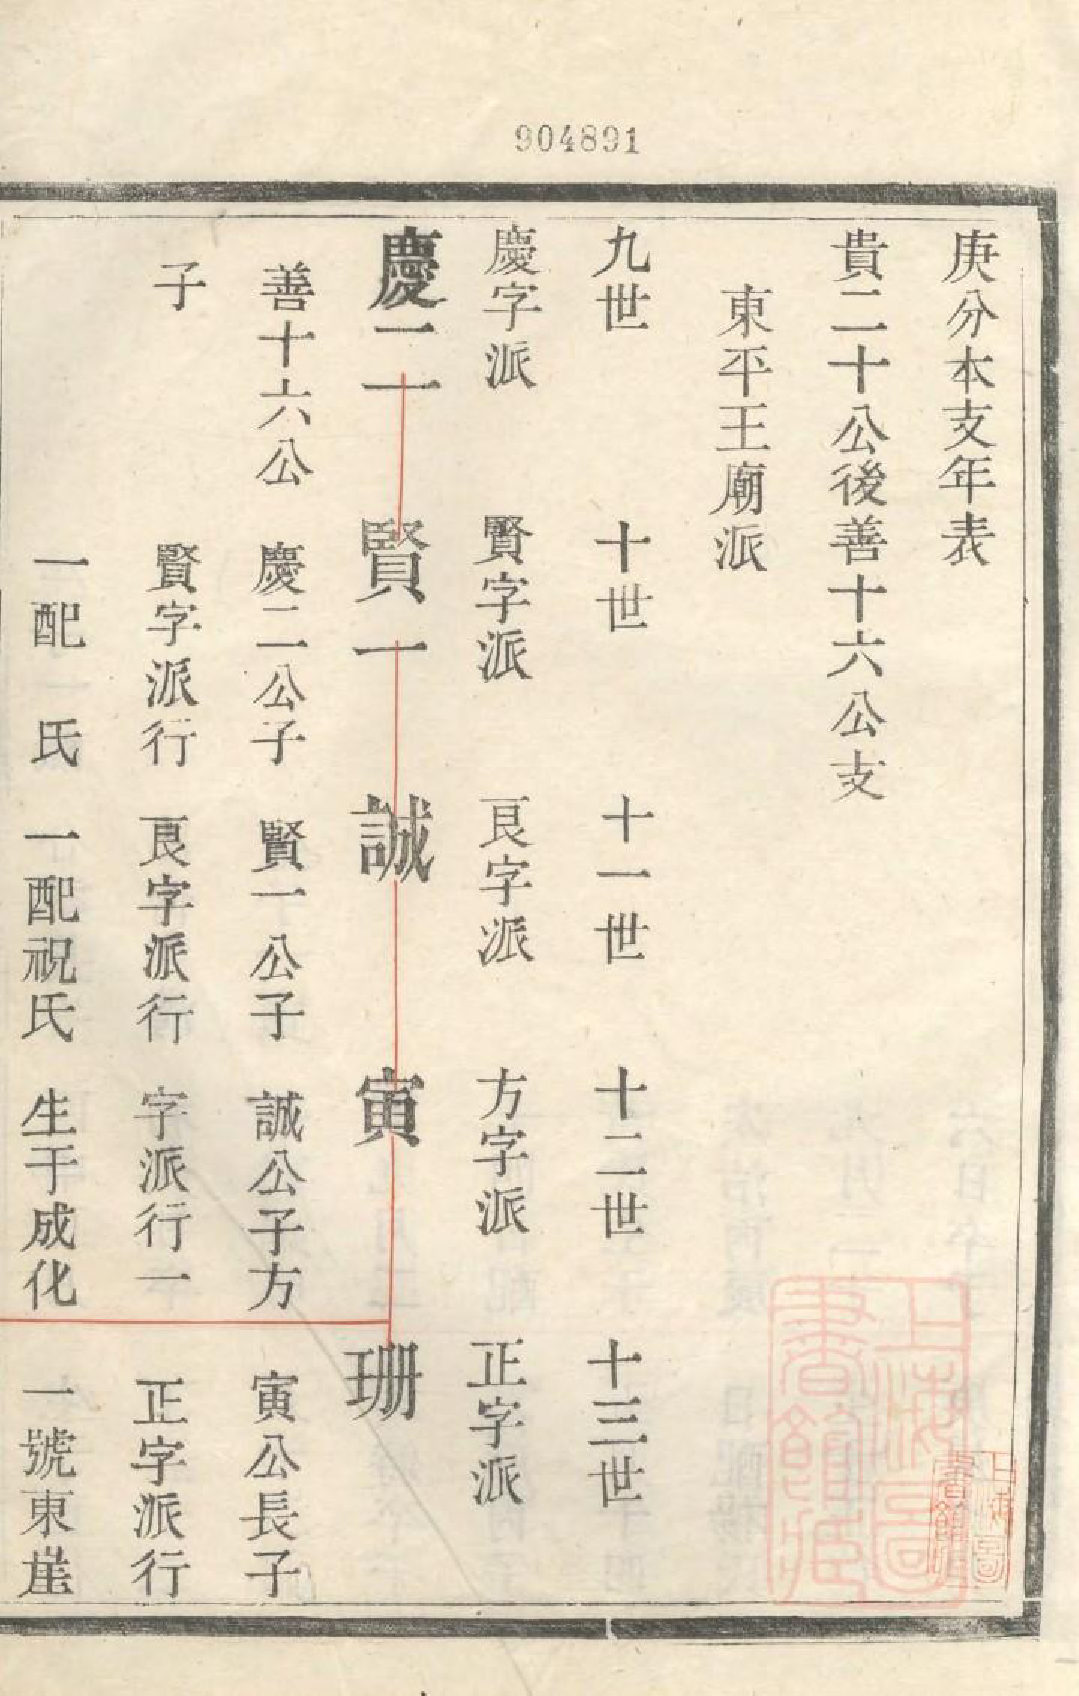 904891
庚分本支年表
貴二十公後善十六公支
東平王廟派
九世
十世
十一世
十二世
十三世
慶字派
賢字派
艮字派
方字派
正字派
慶二
賢一
誠
寅
珊
善十六公
慶二公子
賢一公子
誠公子方
寅公長子
子
賢字派行
艮字派行
字派行一
正字派行
一配
氏
一配祝氏
生于成化
一號東崖
上海圖書館藏
上海圖書館藏